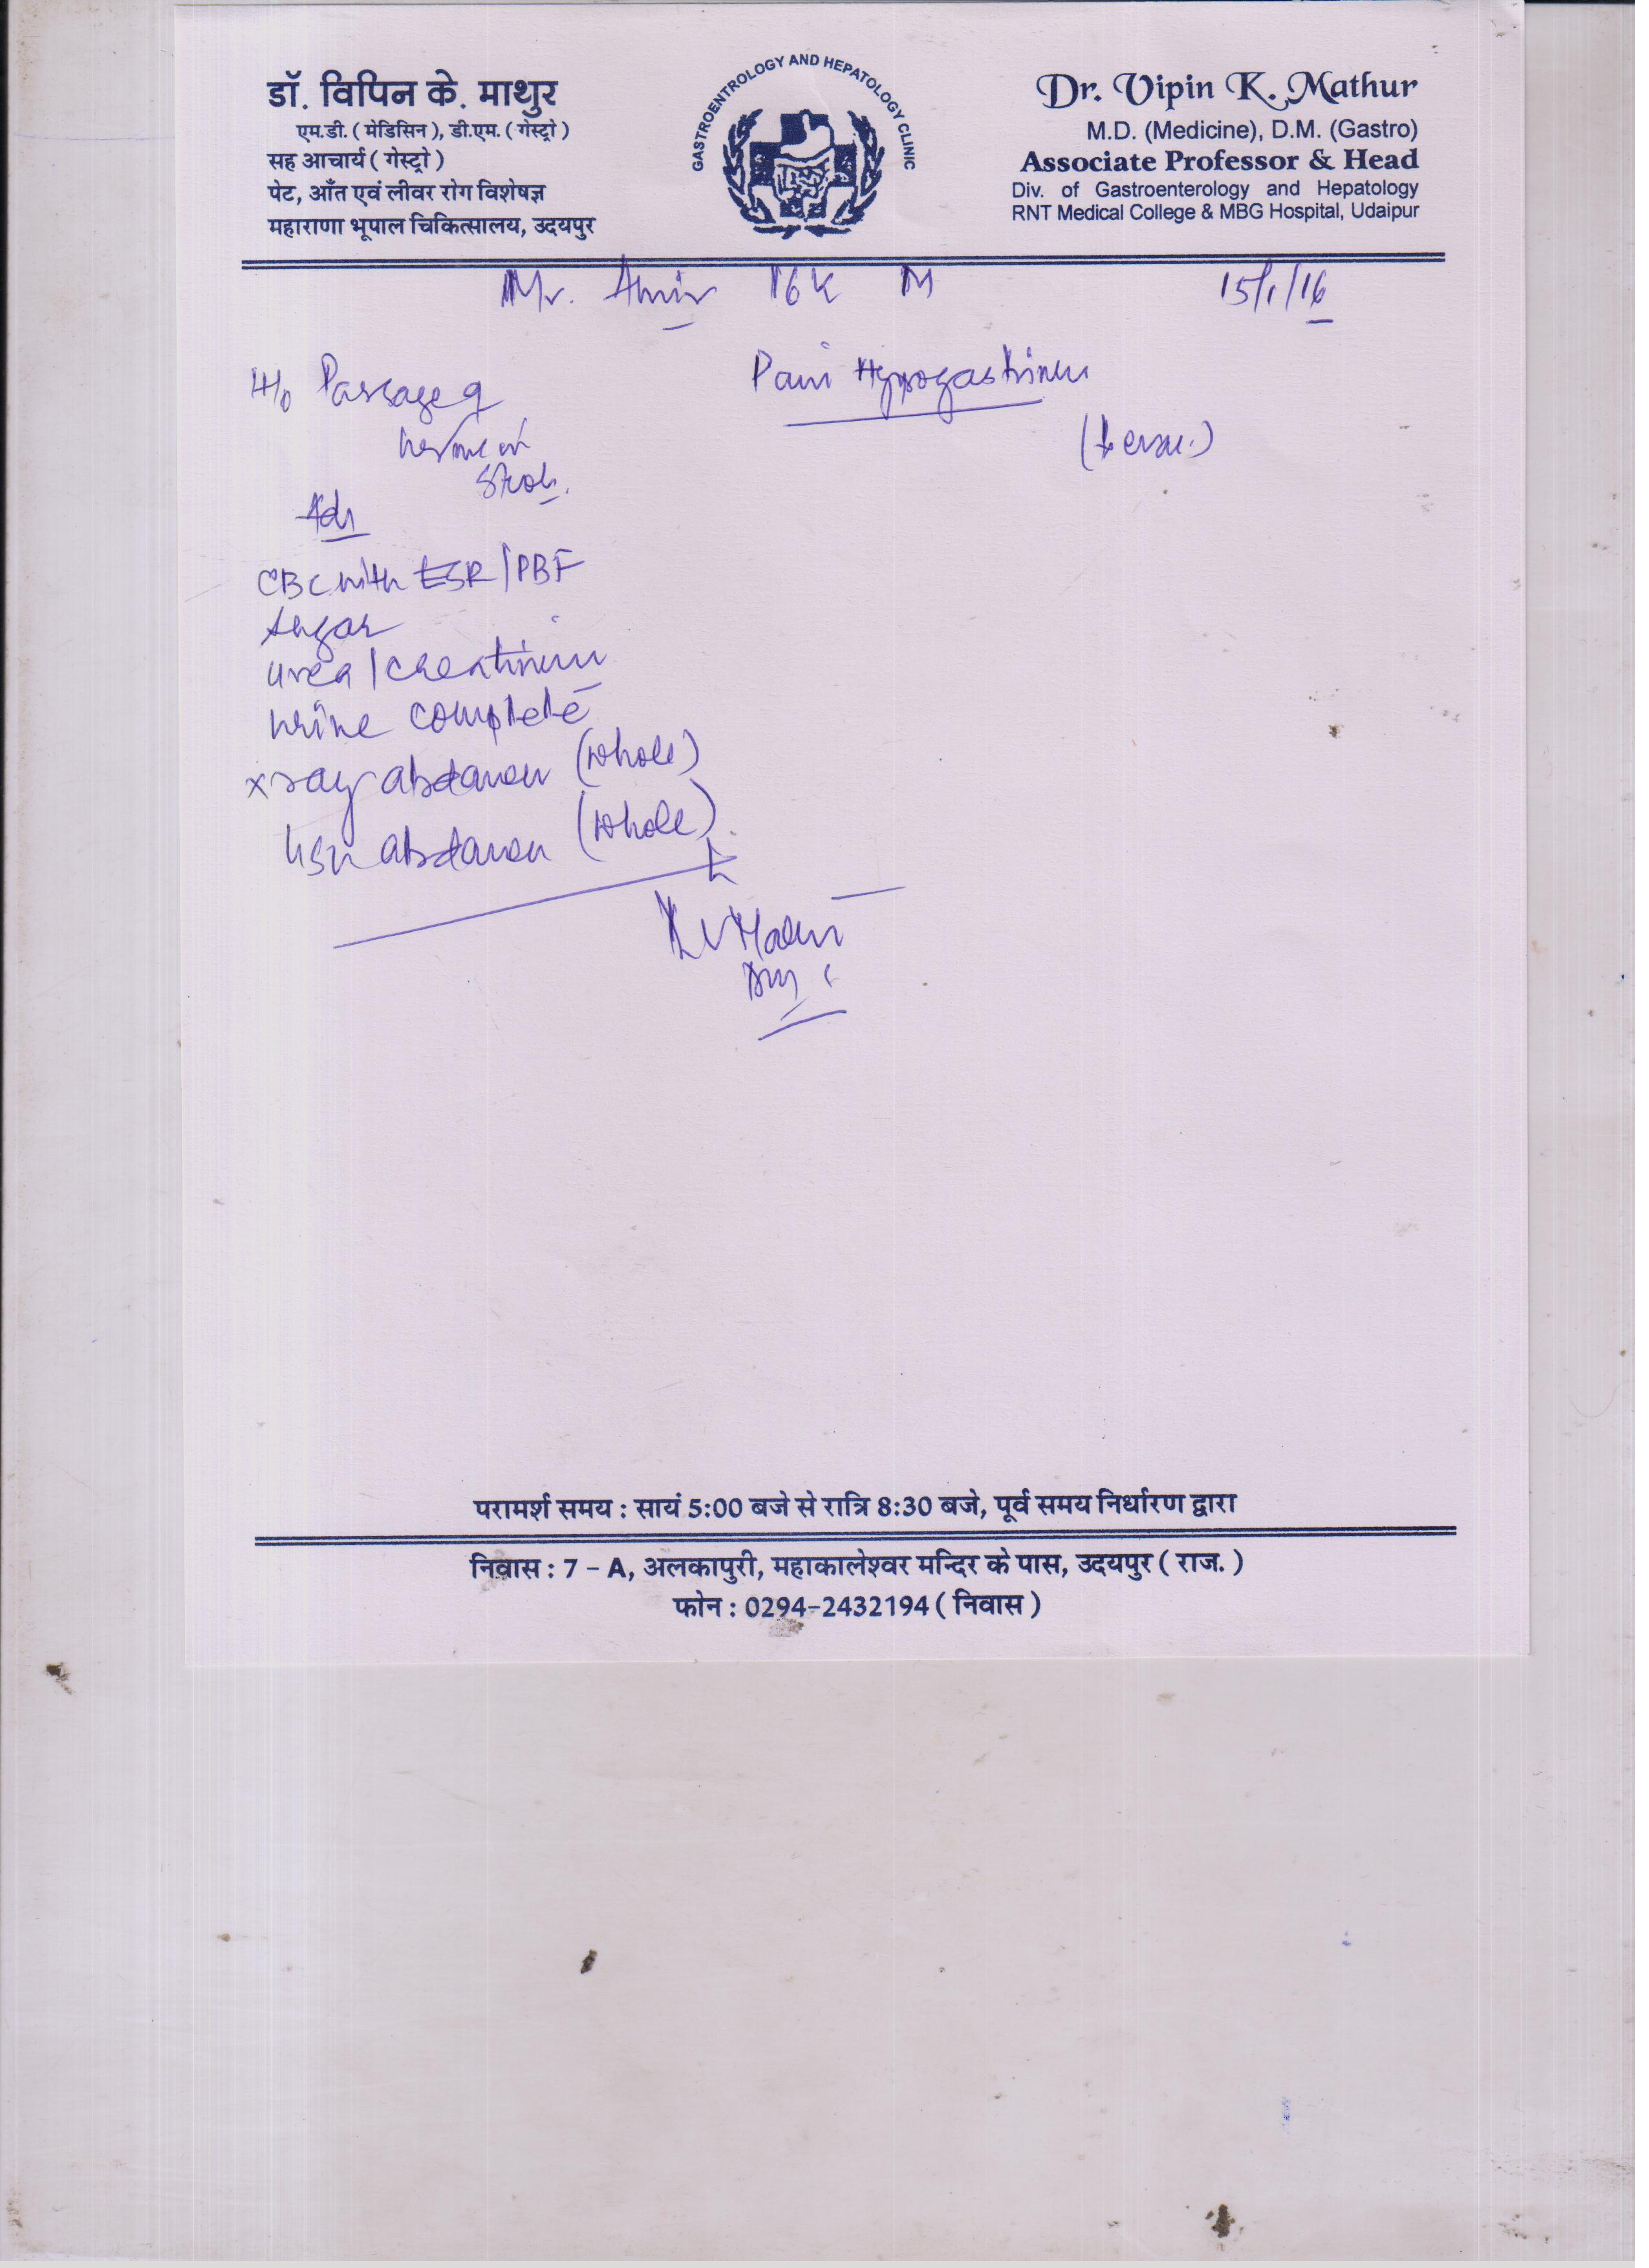 डॉ. विपिन के. माथुर
एम.डी. ( मेडिसिन ), डी.एम. ( गेस्ट्रो )
सह आचार्य ( गेस्ट्रो )
पेट, आँत एवं लीवर रोग विशेषज्ञ
महाराणा भूपाल चिकित्सालय, उदयपुर
GASTROENTROLOGY AND HEPATOLOGY CLINIC
Dr. Vipin K. Mathur
M.D. (Medicine), D.M. (Gastro)
Associate Professor & Head
Div. of Gastroenterology and Hepatology
RNT Medical College & MBG Hospital, Udaipur
Mr. M 15/1/16
H/o Passage
Pain Hypogastrium
Adv
CBC with ESR/PBF
Sugar
Urea/Creatinine
Urine complete
x ray abdomen (whole)
abdomen (whole)
परामर्श समय : सायं 5:00 बजे से रात्रि 8:30 बजे, पूर्व समय निर्धारण द्वारा
निवास : 7 - A, अलकापुरी, महाकालेश्वर मन्दिर के पास, उदयपुर ( राज. )
फोन : 0294-2432194 ( निवास )